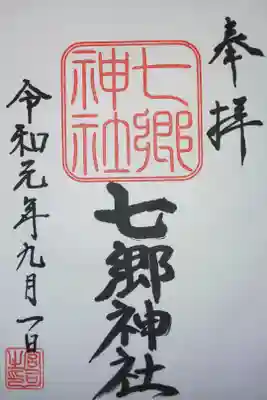 奉拝
七郷
神社
七郷神社
令和元年九月一日
宮司
之印